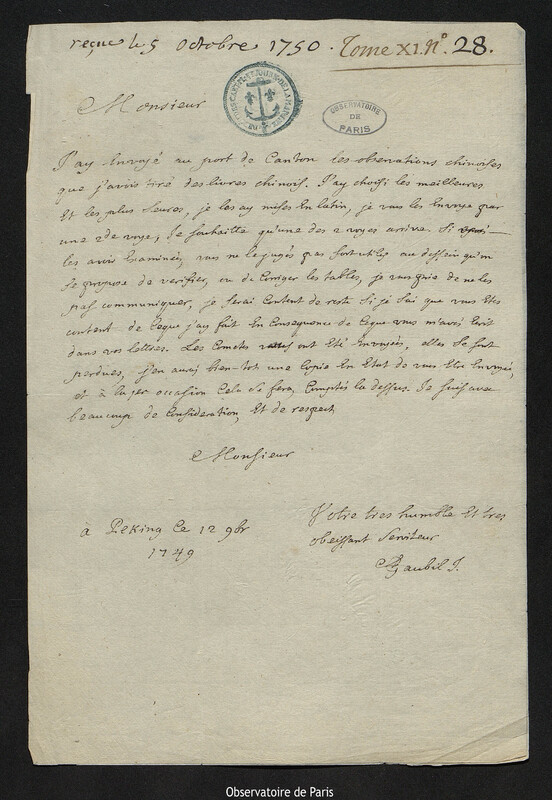 reçue le 5 octobre 1750. Tome XI. N.° 28.
OBSERVATOIRE
DE
PARIS
Monsieur
J'ay Envoyé au port de Canton les observations chinoises
que j'avois tiré des livres chinois. J'ay choisi les meilleures
Et les plus seures, je les ay mises En latin, je vous les Envoye par
une 2de voye, Je souhaitte qu'une des 2 voyes arrive. Si
les aiant Examinées, vous ne le jugés pas fort utiles au dessein qu'on
se propose de verifier, ou de Corriger les tables, je vous prie de ne les
pas communiquer, je serai Content de reste si je sai que vous Etes
content de Ceque j'ay fait En Consequence de Ceque vous m'avés Ecrit
dans vos lettres. Les Cometes ont Eté Envoyées, elles se sont
perdues, j'en aurai bien-tot une Copie En Etat de vous Etre Envoyée,
et à la 1ere occasion Cela se fera, Comptés la dessus. Je suis avec
beaucoup de Consideration, Et de respect
Monsieur
Votre tres humble Et tres
obeissant Serviteur
Gaubil J.
à Peking le 12 9br
1749
Observatoire de Paris